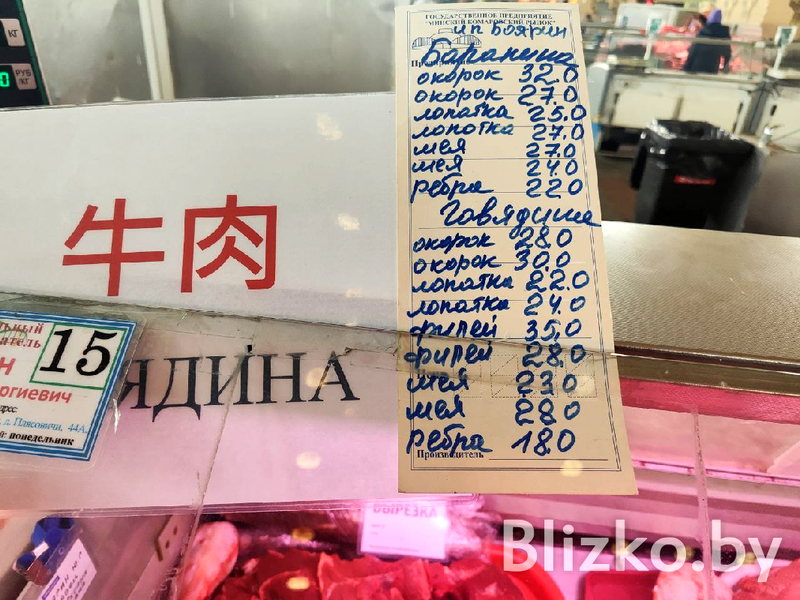 КГ
0 РУБ/КГ
牛肉
ЯДИНА
15
ргиевич
д. Плясовичи, 44А
понедельник
ГОСУДАРСТВЕННОЕ ПРЕДПРИЯТИЕ
"МИНСКИЙ КОМАРОВСКИЙ РЫНОК"
ип Боярин
Баранина
окорок 32.0
окорок 27.0
лопатка 25.0
лопотка 27.0
шея 27.0
шея 24.0
ребра 22.0
Говядина
окорок 28.0
окорок 30.0
лопатка 22.0
лопатка 24.0
филей 35.0
филей 28.0
шея 23.0
шея 28.0
ребра 18.0
Производитель
ВЫРЕЗКА
Blizko.by